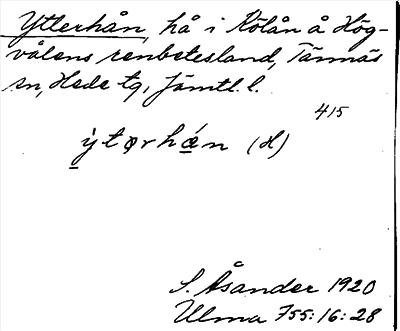 Ytterhån, hå i Kölån å Hög-
vålens renbetesland, Tännäs
sn, Hede tg, Jämtl. l.
415
ỳtərhǽn (H)
S. Åsander 1920
Ulma 755:16:28